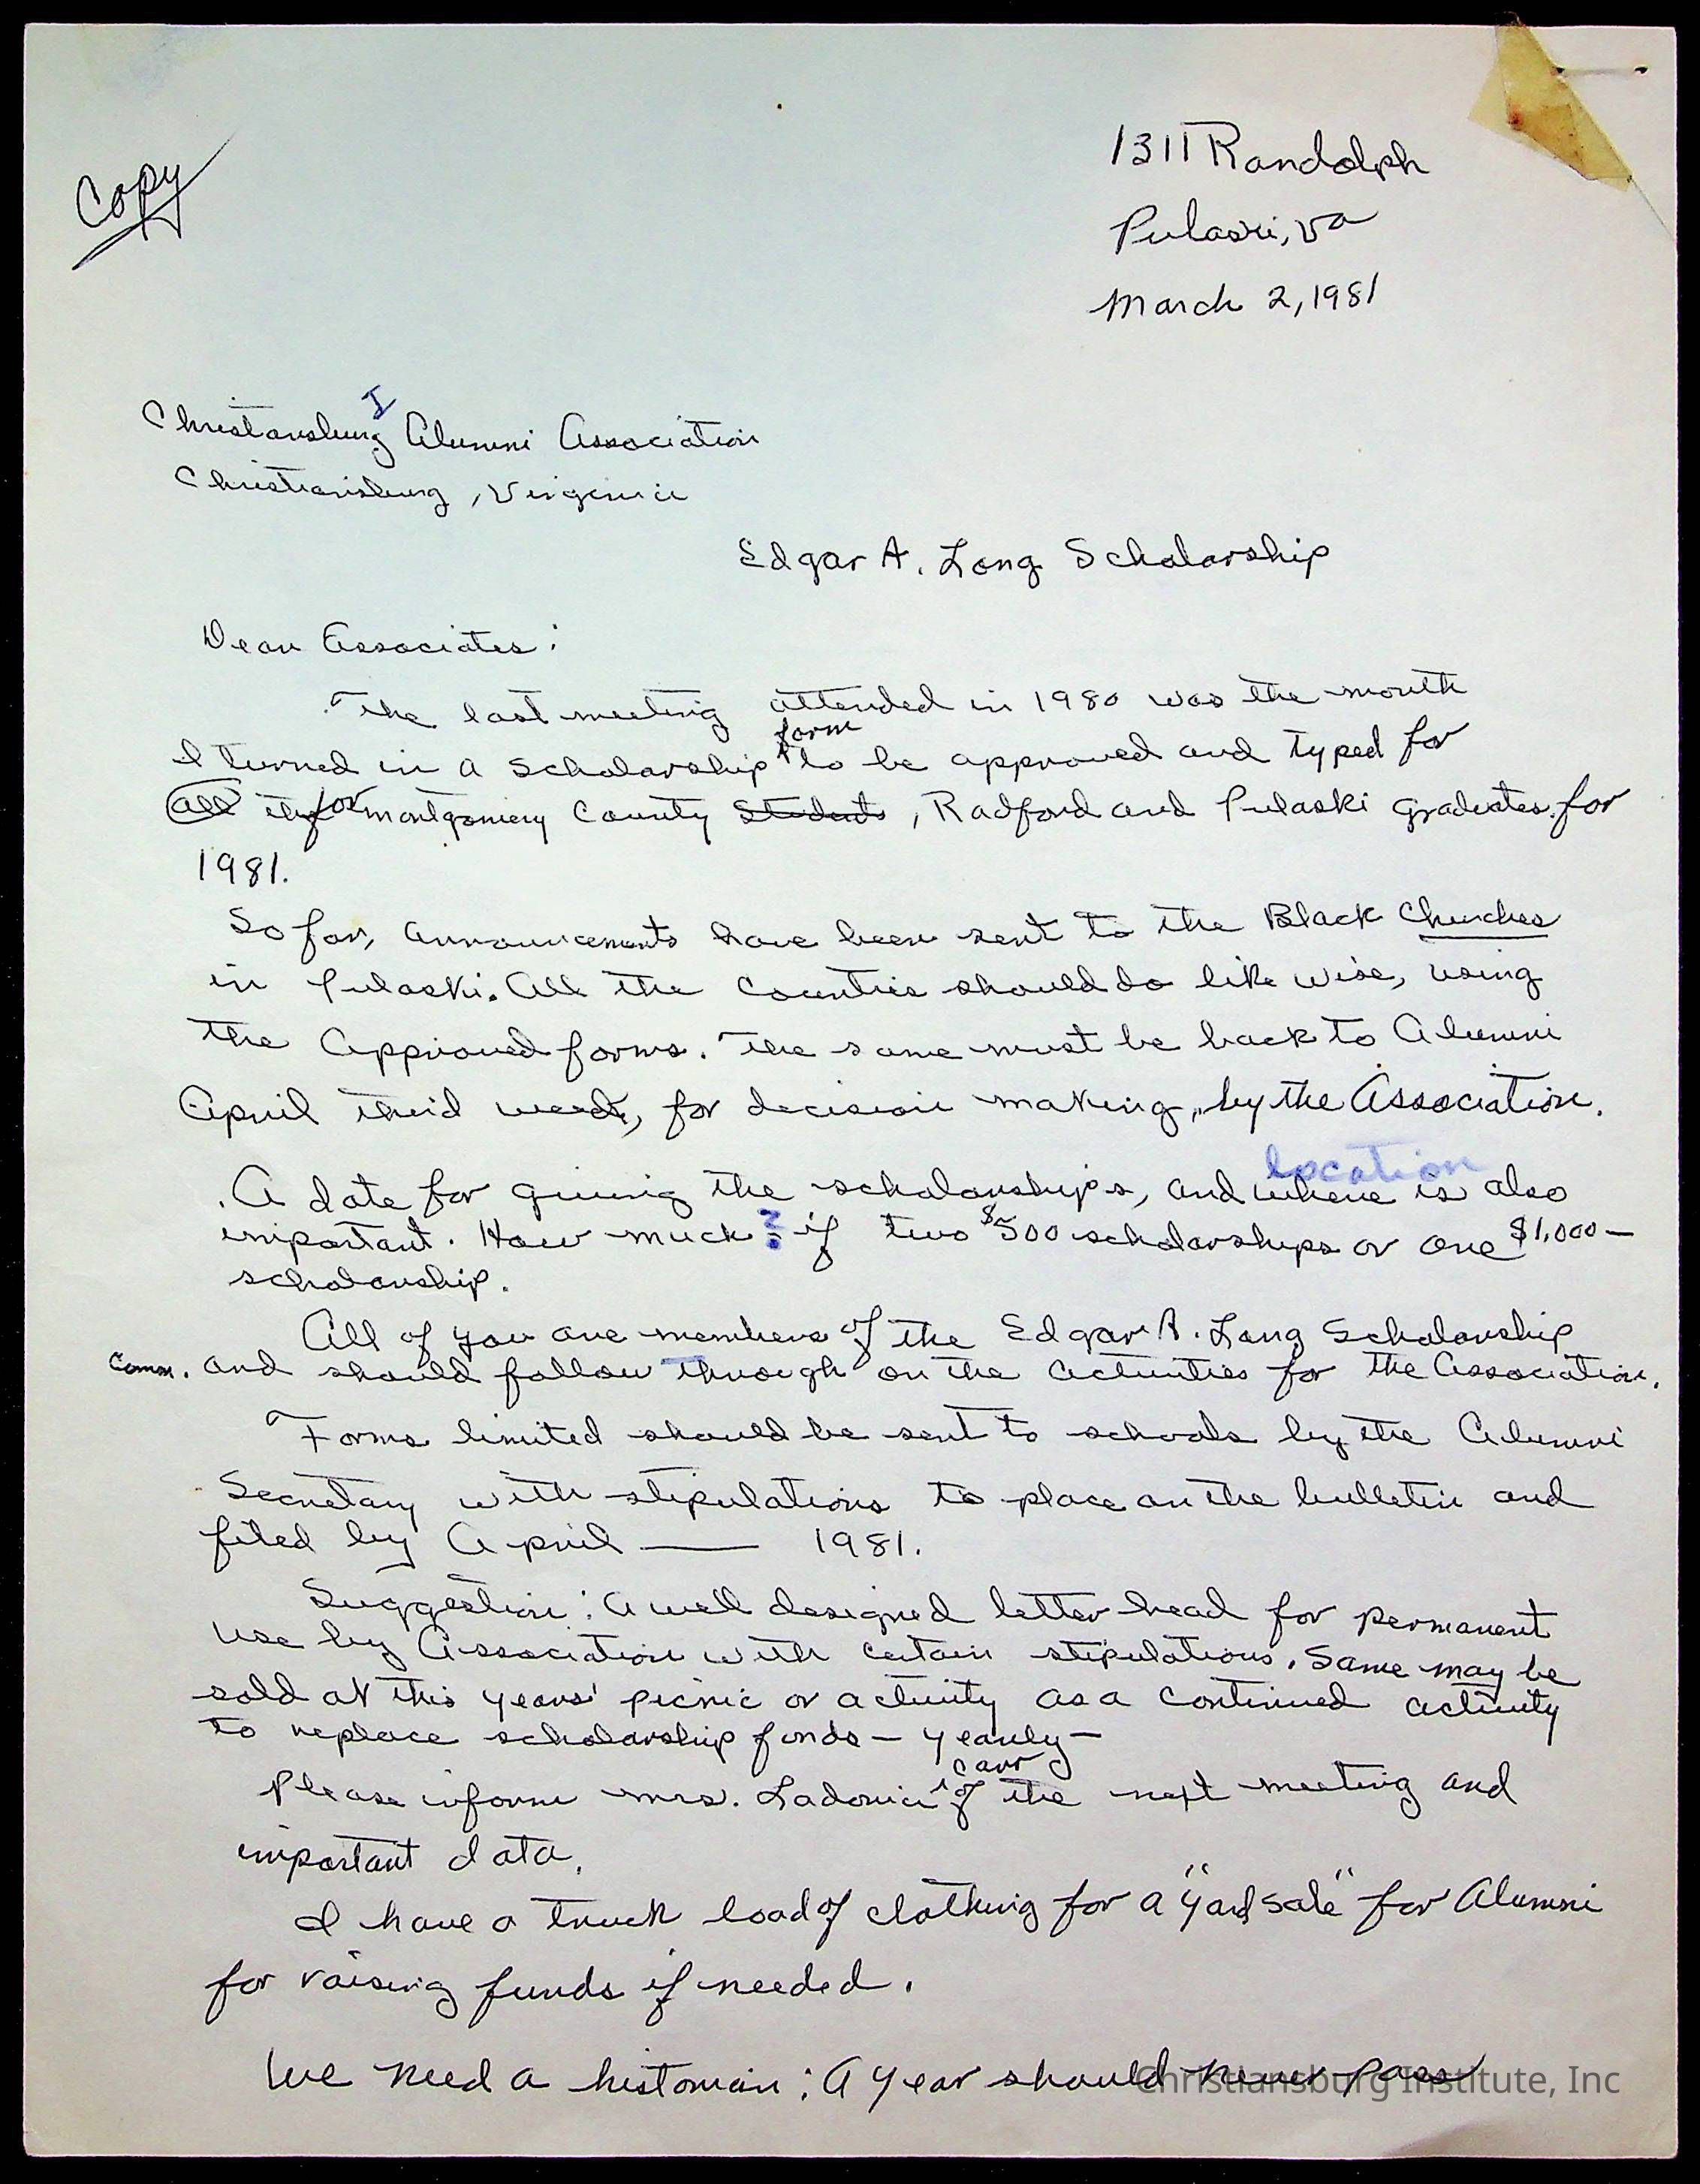 Copy
1311 Randolph
Pulaski, Va
March 2, 1981
I
Christansburg Alumni Association
Christiansburg, Virginia
Edgar A. Long Scholarship
Dear Associates:
The last meeting attended in 1980 was the month
form
I turned in a Scholarship to be approved and typed for
all for Montgomery County Students, Radford and Pulaski graduates for
1981.
So far, announcements have been sent to the Black Churches
in Pulaski. All the Counties should do like wise, using
the Approved forms. The same must be back to Alumni
April third week, for decision making, by the Association.
location
A date for giving the scholarships, and where is also
important. How much? if two $500 scholarships or one $1,000 —
scholarship.
All of you are members of the Edgar A. Long Scholarship
Comm. and should follow through on the activities for the Association.
Forms limited should be sent to schools by the Alumni
Secretary with stipulations to place on the bulletin and
filed by April —— 1981.
Suggestion: A well designed letter head for permanent
use by Association with certain stipulations. Same may be
sold at this years' picnic or activity as a continued activity
to replace scholarship funds — yearly —
Carr
Please inform Mrs. Ladonia of the next meeting and
important data.
I have a truck load of clothing for a "yard sale" for Alumni
for raising funds if needed.
We need a historian: A year should never pass
Christiansburg Institute, Inc